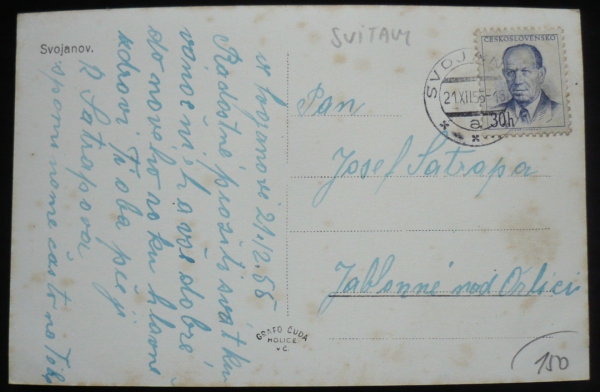 Svojanov.
SVITAVY
ČESKOSLOVENSKO
30h
SVOJANOV
21.XII.55
a
Svojanově 21.12.55
Radostné prožití svátků
vánočních a vše dobré
do nového roku hlavně
zdraví Vám oba přejí
R Satrapova
vzpomínáme často na Tebe
Pan
Josef Satrapa
Jablonné nad Orlicí
GRAFO ČUDA
HOLICE
v Č.
150